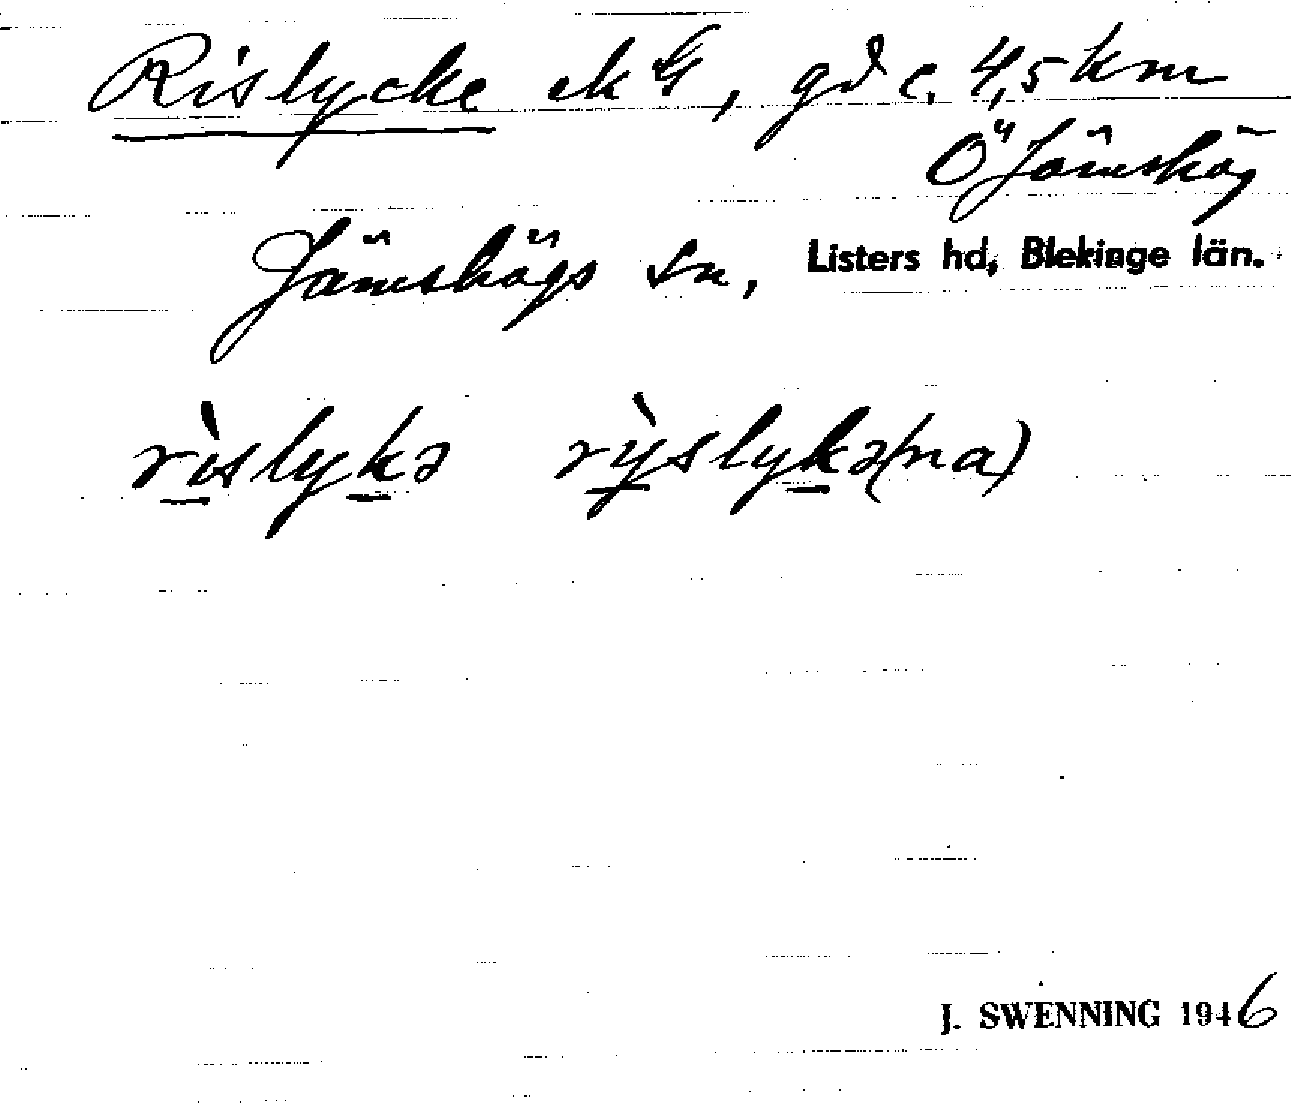 Rislycke ek G, gd c. 4,5 km
Ö Jämshög
Jämshögs sn, Listers hd, Blekinge län.
rìslykə rỳslykə(na)
J. SWENNING 1946